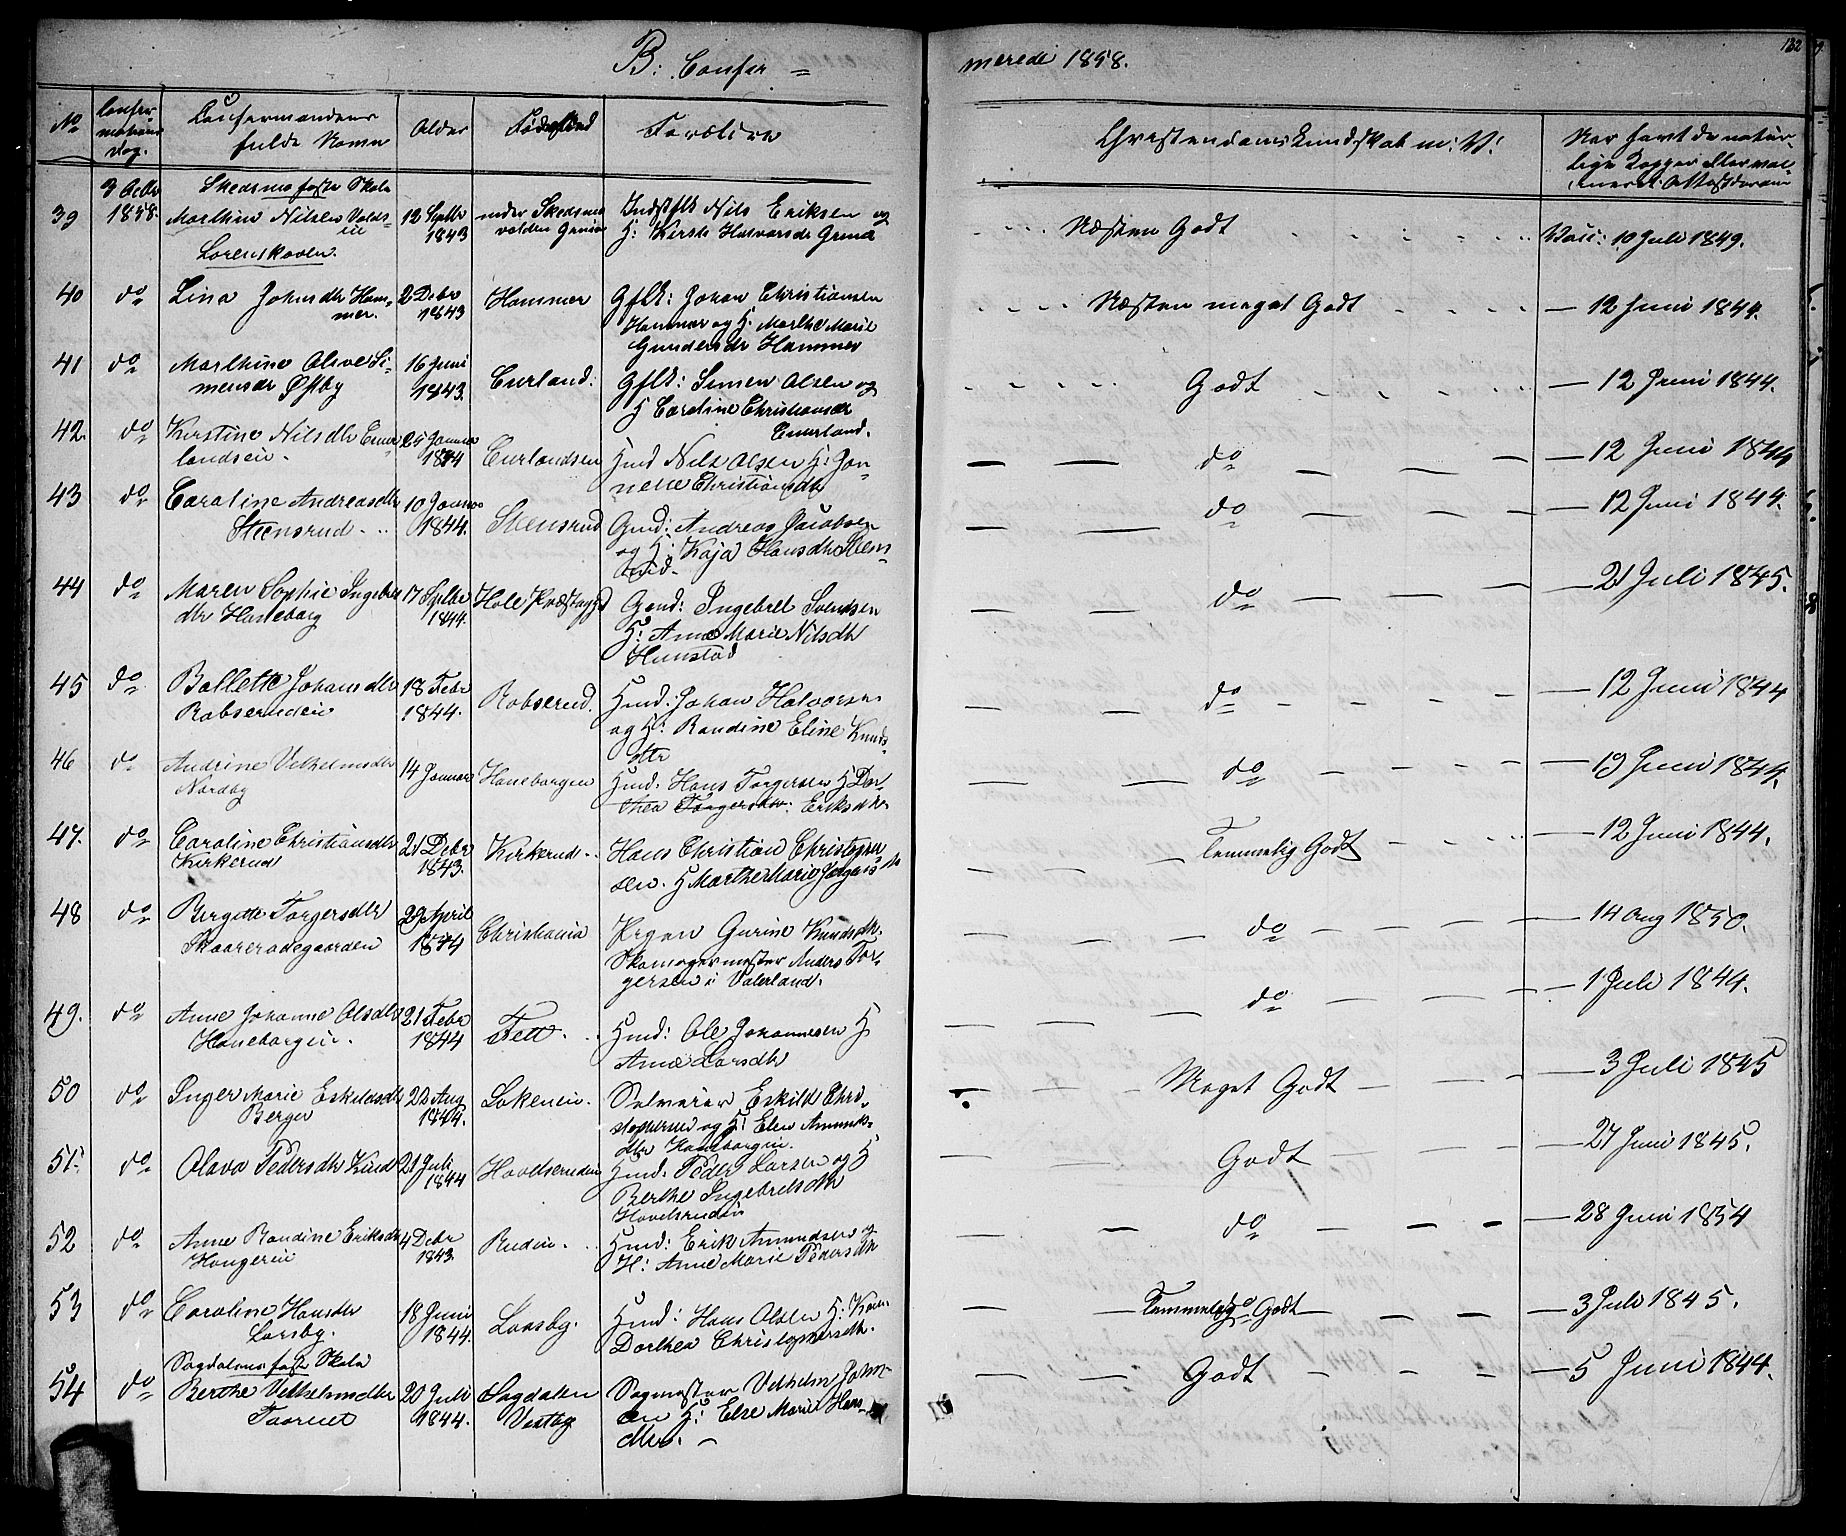 B: Confir = merede 1858.
132
No
Confir
mations
dag.
Confirmandens
fulde Navn
Alder
Fødested
Forældre
Christendoms Kundskab m: V:
Naar havt de natur-
lige Kopper eller vac-
cineret: Attest derom
3 Octbr
1858.
Skedsmo faste Skole
39 Marthin Nilsen Valds-
eie
12 Septbr
1843
under Skedsmo
Indstflk Nils Eriksen og
H: Kirsti Halvorsdr
Næsten Godt
Vacc: 10 Juli 1849.
Lorenskoven.
40 do Lina Johnsdtr Ham-
mer.
2 Debr
1843
Hammer
Gflk: Johan Christiansen
Hammer og H. Marthe Marie
Gundersdr Hammer
Næsten meget Godt
— 12 Juni 1844.
41 do Marthine Olave Si-
mensdr Østby
16 Juni
1843.
Curland:
Gflk: Simen Olsen og
H Caroline Christiansdr
Curland.
Godt
— 12 Juni 1844.
42. do Kirstine Nilsdtr Cuur
landseie.
25 Januar
1844
Curlandseie
Hmd Nils Olsen H: Jon-
nette Christiansdtr
do
12 Juni 1844
43 do Caroline Andreasdtr
Steensrud
10 Januar
1844.
Stensrud
Gmd: Andreas Jacobsen
og H: Kaja Hansdtr Steens-
rud.
do
— 12 Juni 1844.
44 do Maren Sophie Ingebret
dtr Haneborg
17 Septbr
1844.
Hole Præstegjd
Gmd: Ingebret Svendsen
H: Anne Marie Nilsdtr
Hunstad
do
— 21 Juli 1845.
45 do Bollette Johansdtr
Robsrudeie
18 Febr
1844.
Robserud.
Hmd: Johan Halvorsen
og H: Randine Eline Knuds-
dtr
do
— 12 Juni 1844
46 do Andrine Vilhelmsdtr
Nordby
14 Januar
Haneborgeie
Hmd: Hans Torgersen H Dor-
thea Torgersdtr: Eriksdtr
do
— 19 Juni 1844.
47. do Caroline Christiansdtr
Kirkerud
21 Debr
1843.
Kirkerud
Hans Christian Christopher
sen. H Marthe Marie Jørgensdtr
Temmelig Godt
— 12 Juni 1844.
48 do Bergitte Torgersdtr
Skaarerødegaarden
29 April
1844
Christiania
Pigen Gurine Knudsdtr.
Skomagermester Anders Tor-
gersen i Vaterland.
do
— 14 Aug 1850.
49. do Anne Johanne Olsdtr
Haneborgeie.
21 Febr
1844
Fett
Hmd: Ole Johannesen H
Anne Larsdtr
do
— 1 Juli 1844.
50 do Inger Marie Eskildsdtr
Berger
22 Aug
1844.
Lokeneie.
Selveier Eskild Chri-
stophersen og H: Elen Amunds-
dtr Haneborgeie.
Meget Godt
— 3 Juli 1845
51. do Olava Pedersdtr Kind
21 Juli
1844
Hovelsrudeie
Hmd. Peder Larsen og H
Berthe Ingebretsdtr
Hovelsrudeie
Godt
— 27 Juni 1845.
52 do Anne Randine Eriksdtr
Haugereie
4 Debr
1843
Rudeie.
Hmd: Erik Amundsen og
H: Anne Marie Pedersdtr
do
— 28 Juni 1854
53 do Caroline Hansdtr
Losby.
18 Juni
1844.
Loosby.
Hmd: Hans Olsen H: Karen
Dorthea Christophersdtr.
Temmelig Godt
— 3 Juli 1845.
Sagdalens faste Skole
54 do Berthe Vilhelmsdtr
20 Juli
1844.
Sagdalen
Vestby
Sagmester Vilhelm John-
sen H: Else Marie Hans-
dtr. —
Godt
— 5 Juni 1844.